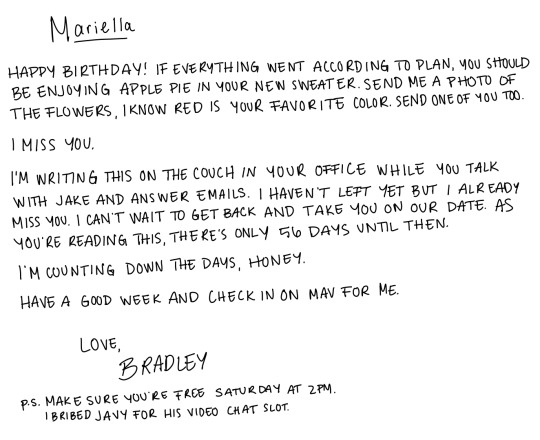 Mariella
HAPPY BIRTHDAY! IF EVERYTHING WENT ACCORDING TO PLAN, YOU SHOULD
BE ENJOYING APPLE PIE IN YOUR NEW SWEATER. SEND ME A PHOTO OF
THE FLOWERS, I KNOW RED IS YOUR FAVORITE COLOR. SEND ONE OF YOU TOO.
I MISS YOU.
I'M WRITING THIS ON THE COUCH IN YOUR OFFICE WHILE YOU TALK
WITH JAKE AND ANSWER EMAILS. I HAVEN'T LEFT YET BUT I ALREADY
MISS YOU. I CAN'T WAIT TO GET BACK AND TAKE YOU ON OUR DATE. AS
YOU'RE READING THIS, THERE'S ONLY 56 DAYS UNTIL THEN.
I'M COUNTING DOWN THE DAYS, HONEY.
HAVE A GOOD WEEK AND CHECK IN ON MAV FOR ME.
LOVE,
BRADLEY
P.S. MAKE SURE YOU'RE FREE SATURDAY AT 2PM.
I BRIBED JAVY FOR HIS VIDEO CHAT SLOT.